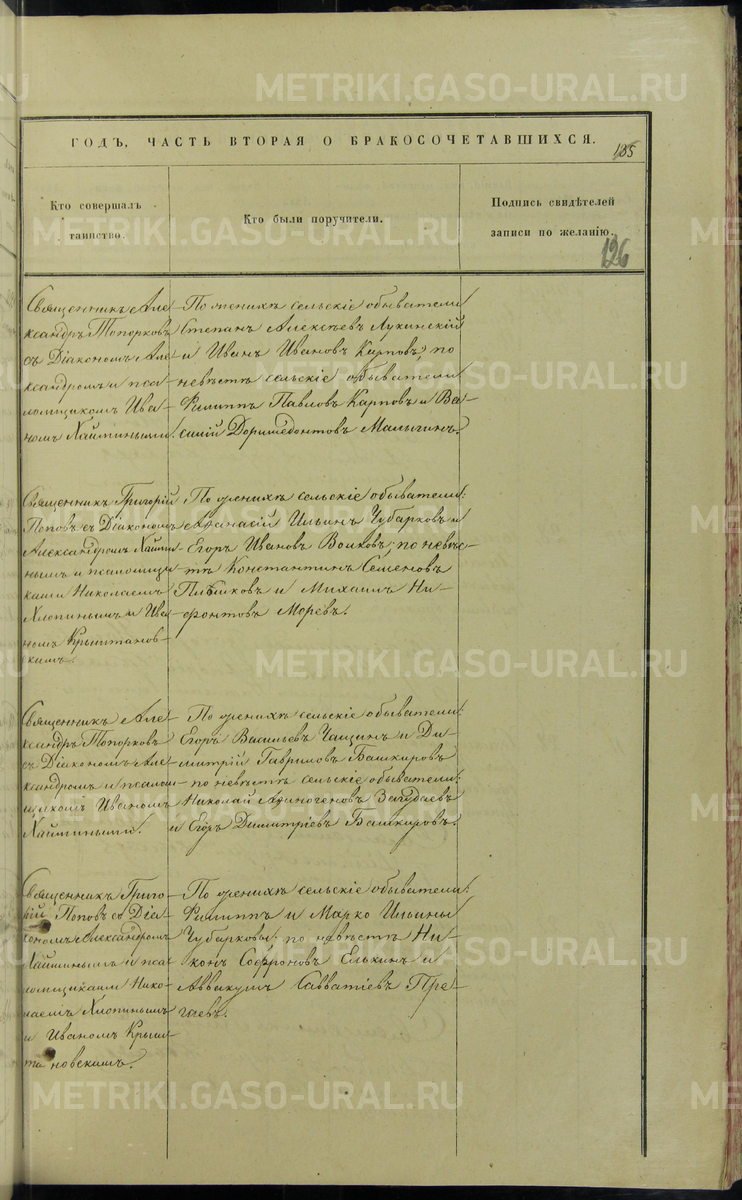 ГОДЪ, ЧАСТЬ ВТОРАЯ О БРАКОСОЧЕТАВШИХСЯ.
185
Кто совершалъ
таинство.
Кто были поручители.
Подпись свидѣтелей
записи по желанію.
126
Священникъ Але-
ксандръ Топорковъ
съ Діакономъ Але-
ксандромъ и пса-
ломщикомъ Ива-
номъ Хайтиными.
По женихѣ сельскіе обыватели
Степанъ Алексѣевъ Лукинскій
и Иванъ Ивановъ Карповъ, по
невѣстѣ сельскіе обыватели
Филиппъ Павловъ Карповъ и Ва-
силій Доримедонтовъ Малыгинъ.
Священникъ Григорій
Поповъ съ Діакономъ
Александромъ Хайти-
нымъ и псаломщи-
ками Николаемъ
Хлопинымъ и Ива-
номъ Крыштанов-
скимъ.
По женихѣ сельскіе обыватели:
Афанасій Ильинъ Чубарковъ и
Егоръ Ивановъ Волковъ; по невѣс-
тѣ Константинъ Семеновъ
и Михаилъ Ни-
фонтовъ Моревъ.
Священникъ Але-
ксандръ Топорковъ
съ Діакономъ Але-
ксандромъ и псалом-
щикомъ Иваномъ
Хайтиными.
По женихѣ сельскіе обыватели:
Егоръ Васильевъ Чащинъ и Ди-
митрій Гавриловъ Башкировъ
по невѣстѣ сельскіе обыватели:
Николай Афиногеновъ
и Егоръ Димитріевъ Башкировъ.
Священникъ Григо-
рій Поповъ со Діа-
кономъ Александромъ
Хайтинымъ и пса-
ломщиками Нико-
лаемъ Хлопинымъ
и Иваномъ Крыш-
тановскимъ.
По женихѣ сельскіе обыватели:
Филиппъ и Марко Ильины
Чубарковы: по невѣстѣ Ни-
конъ Софроновъ Елькинъ и
Аввакумъ Савватіевъ Пре-
гаевъ.
METRIKI.GASO-URAL.RU